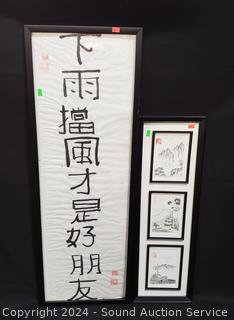 下雨擋風才是好朋友
Copyright 2024 - Sound Auction Service